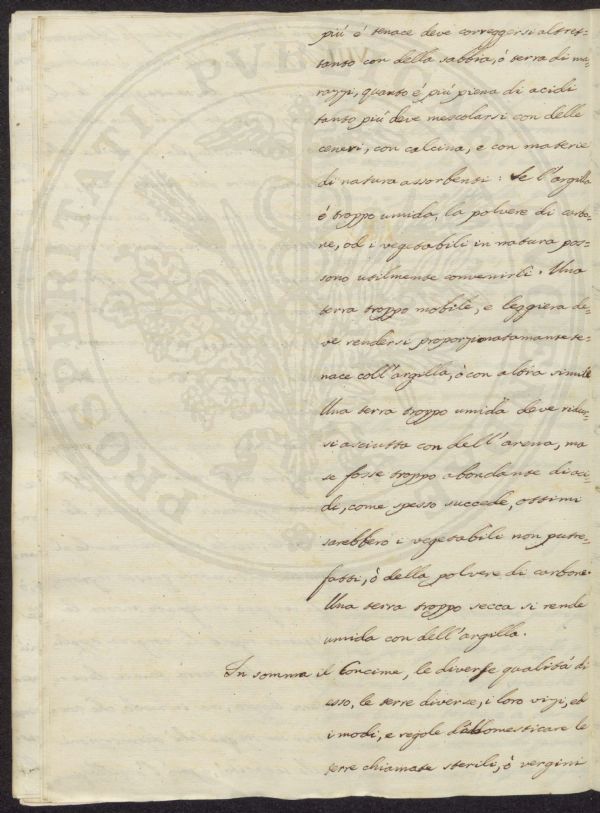 più è tenace deve correggersi altret-
tanto con della sabbia, ò terra di ma-
razzi, quanto é più piena di acidi
tanto più deve mescolarsi con delle
ceneri, con calcina, e con materie
di natura assorbenti: Se l'argilla
é troppo umida, la polvere di carbo-
ne, od i vegetabili in natura pos-
sono utilmente convenirli. Una
terra troppo mobile, e leggiera de-
ve rendersi proporzionatamante te-
nace coll'argilla, ò con altra simile
Una terra troppo umida deve ridur-
si asciutta con dell'arena, ma
se fosse troppo abondante di aci-
di, come spesso succede, ottimi
sarebbero i vegetabili non putre-
fatti, ò della polvere di carbone.
Una terra troppo secca si rende
umida con dell'argilla.
In somma il Concime, le diverse qualitá di
esso, le terre diverse, i loro vizj, ed
i modi, e regole d'addomesticare le
terre chiamate sterili, ò vergini
PROSPERITATI PVBLICAE
VIII